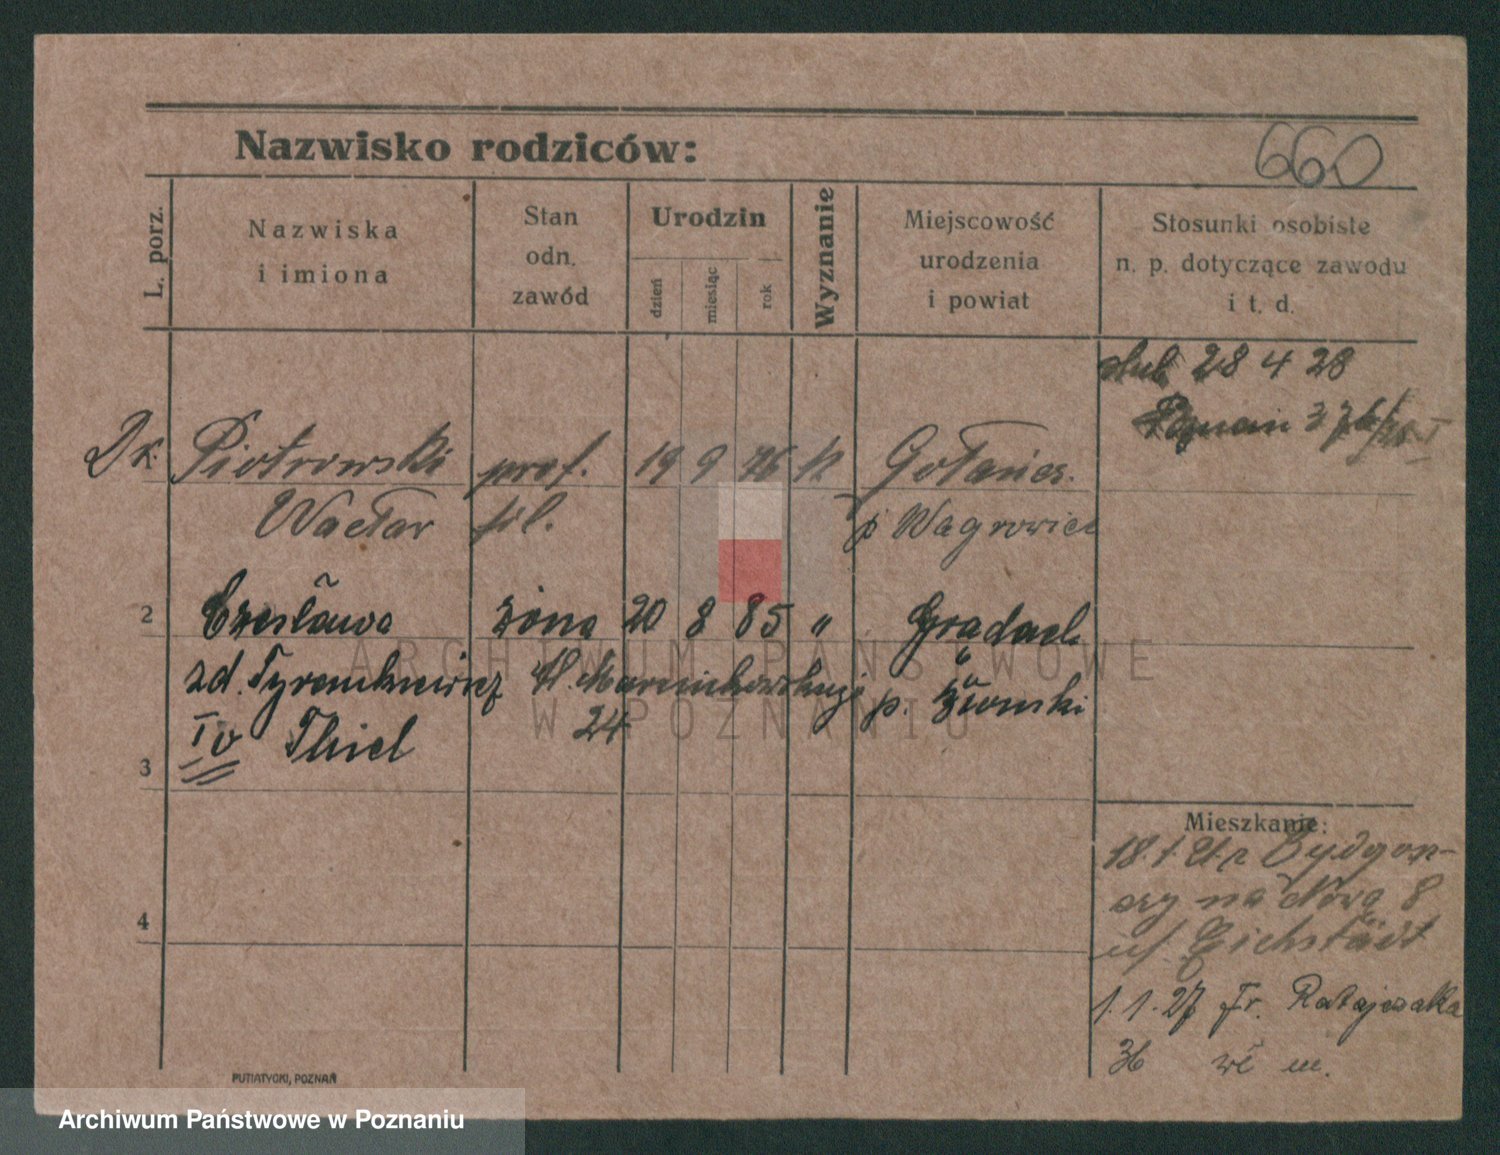 Nazwisko rodziców:
660
L. porz.
Nazwiska
i imiona
Stan
odn.
zawód
Urodzin
dzień
miesiąc
rok
Wyznanie
Miejscowość
urodzenia
i powiat
Stosunki osobiste
n. p. dotyczące zawodu
i t. d.
ślub 28 4 28
Poznań
Dr. Piotrowski prof. 19 9 76 k Gołańcz.
Wacław fil. p Wągrowiec
2 Czesława żona 20 8 85 "
zd. p. Żłomski
24
Iv Thiel
3
Mieszkanie:
18.1. Bydgosz-
czy na Nowa 8
u/ Eichstädt
4
1.1.27 Fr. Ratajczaka
36 m.
PUTIATYCKI, POZNAŃ
ARCHIWUM PAŃSTWOWE
W POZNANIU
Archiwum Państwowe w Poznaniu